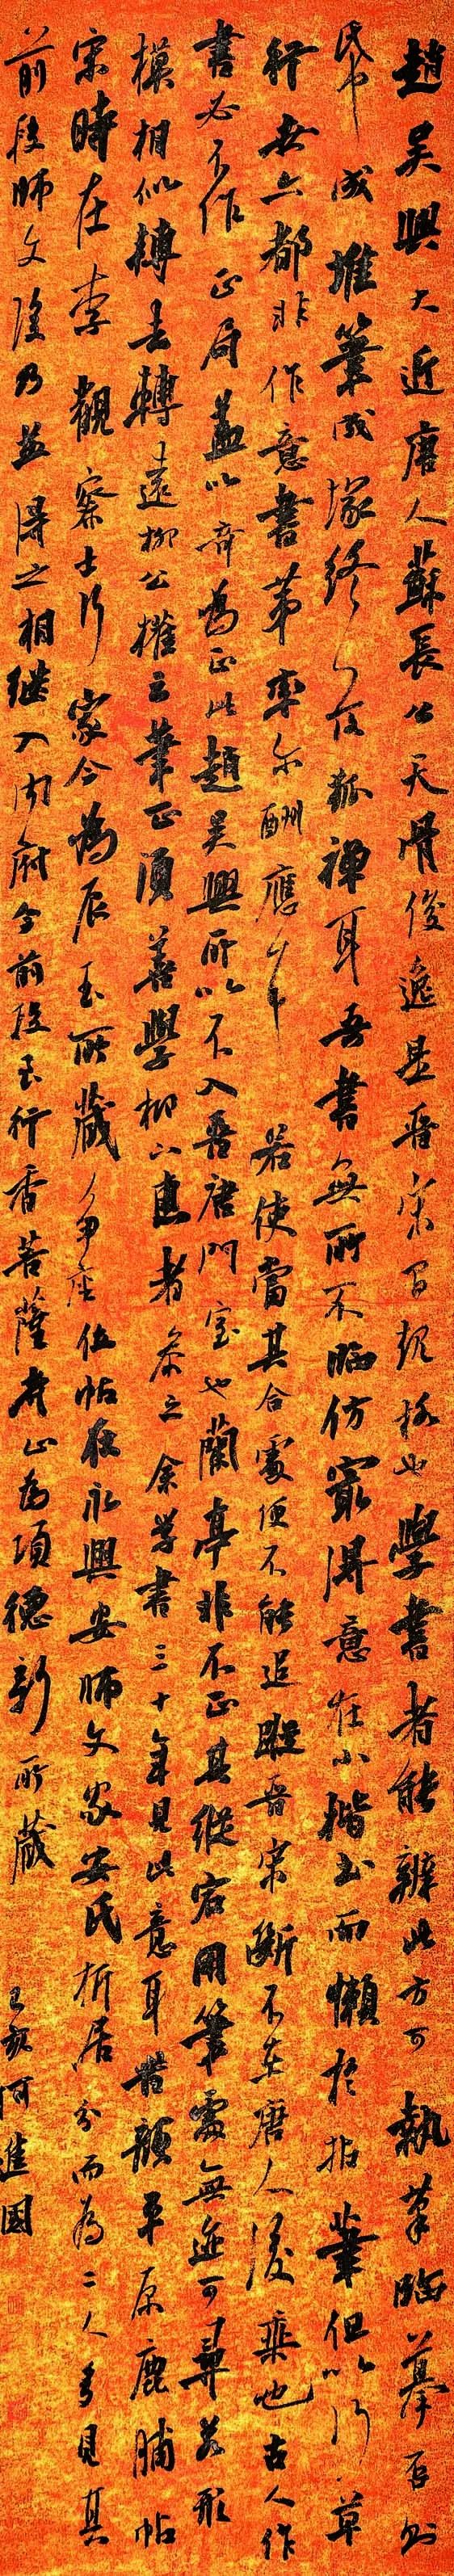 趙吳興大近唐人蘇長公天骨俊逸是晉宋間規格也學書者能辨此方可執筆臨摹否則
成堆筆成塚終落狐禪耳吾書無所不臨仿最得意在小楷書而懶於拈筆但以行草
行世亦都非作意書第率爾酬應耳若使當其合處便不能追蹤晉宋斷不在唐人後乘也古人作
書必不作正局蓋以奇為正此趙吳興所以不入晉唐門室也蘭亭非不正其縱宕用筆處無迹可尋若形
模相似轉去轉遠柳公權云筆正須善學柳下惠者參之余學書三十年見此意耳昔顏平原鹿脯帖
宋時在李觀察士行家今為辰玉所藏爭座位帖在永興安師文家安氏析居分而為二人多見其
前段師文後乃並得之相繼入內府今前段至行香菩薩寺止為項德新所藏
己亥何進國